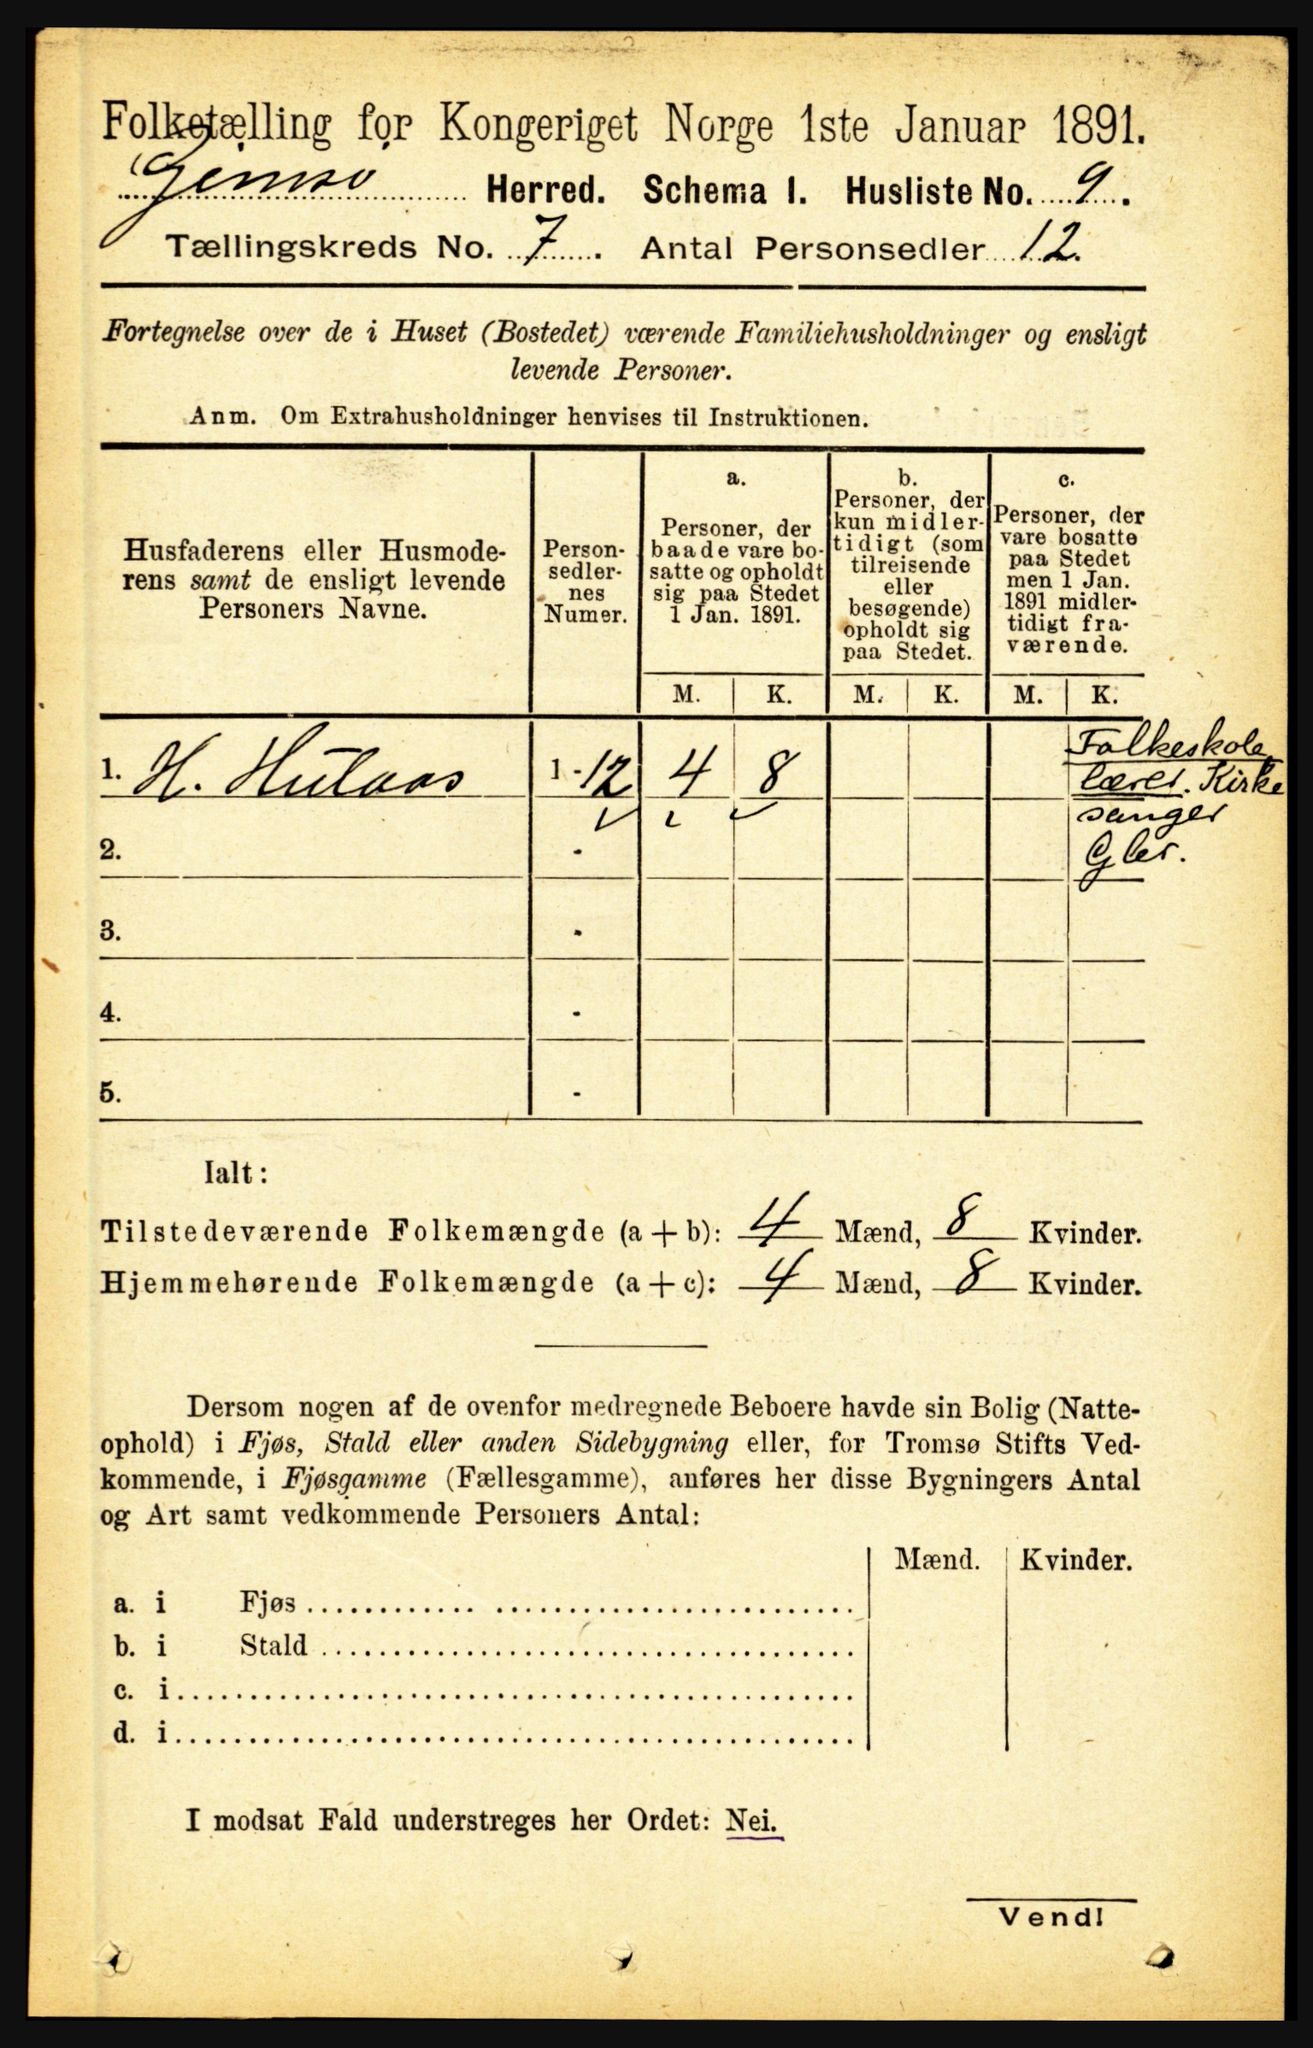 Folketælling for Kongeriget Norge 1ste Januar 1891.
Gimsø Herred. Schema I. Husliste No. 9.
Tællingskreds No. 7. Antal Personsedler 12.
Fortegnelse over de i Huset (Bostedet) værende Familiehusholdninger og ensligt
levende Personer.
Anm. Om Extrahusholdninger henvises til Instruktionen.
Husfaderens eller Husmode-
rens samt de ensligt levende
Personers Navne.
Person-
sedler-
nes
Numer.
a.
Personer, der
baade vare bo-
satte og opholdt
sig paa Stedet
1 Jan. 1891.
b.
Personer, der
kun midler-
tidigt (som
tilreisende
eller
besøgende)
opholdt sig
paa Stedet.
c.
Personer, der
vare bosatte
paa Stedet
men 1 Jan.
1891 midler-
tidigt fra-
værende.
M. K. M. K. M. K.
1. H. Hulaas 1-12 4 8
Folkeskole
lærer. Kirke
sanger
Gbr.
2. -
3. -
4. -
5. -
Ialt:
Tilstedeværende Folkemængde (a + b): 4 Mænd, 8 Kvinder.
Hjemmehørende Folkemængde (a + c): 4 Mænd, 8 Kvinder.
Dersom nogen af de ovenfor medregnede Beboere havde sin Bolig (Natte-
ophold) i Fjøs, Stald eller anden Sidebygning eller, for Tromsø Stifts Ved-
kommende, i Fjøsgamme (Fællesgamme), anføres her disse Bygningers Antal
og Art samt vedkommende Personers Antal:
Mænd. Kvinder.
a. i Fjøs
b. i Stald
c. i
d. i
I modsat Fald understreges her Ordet: Nei.
Vend!